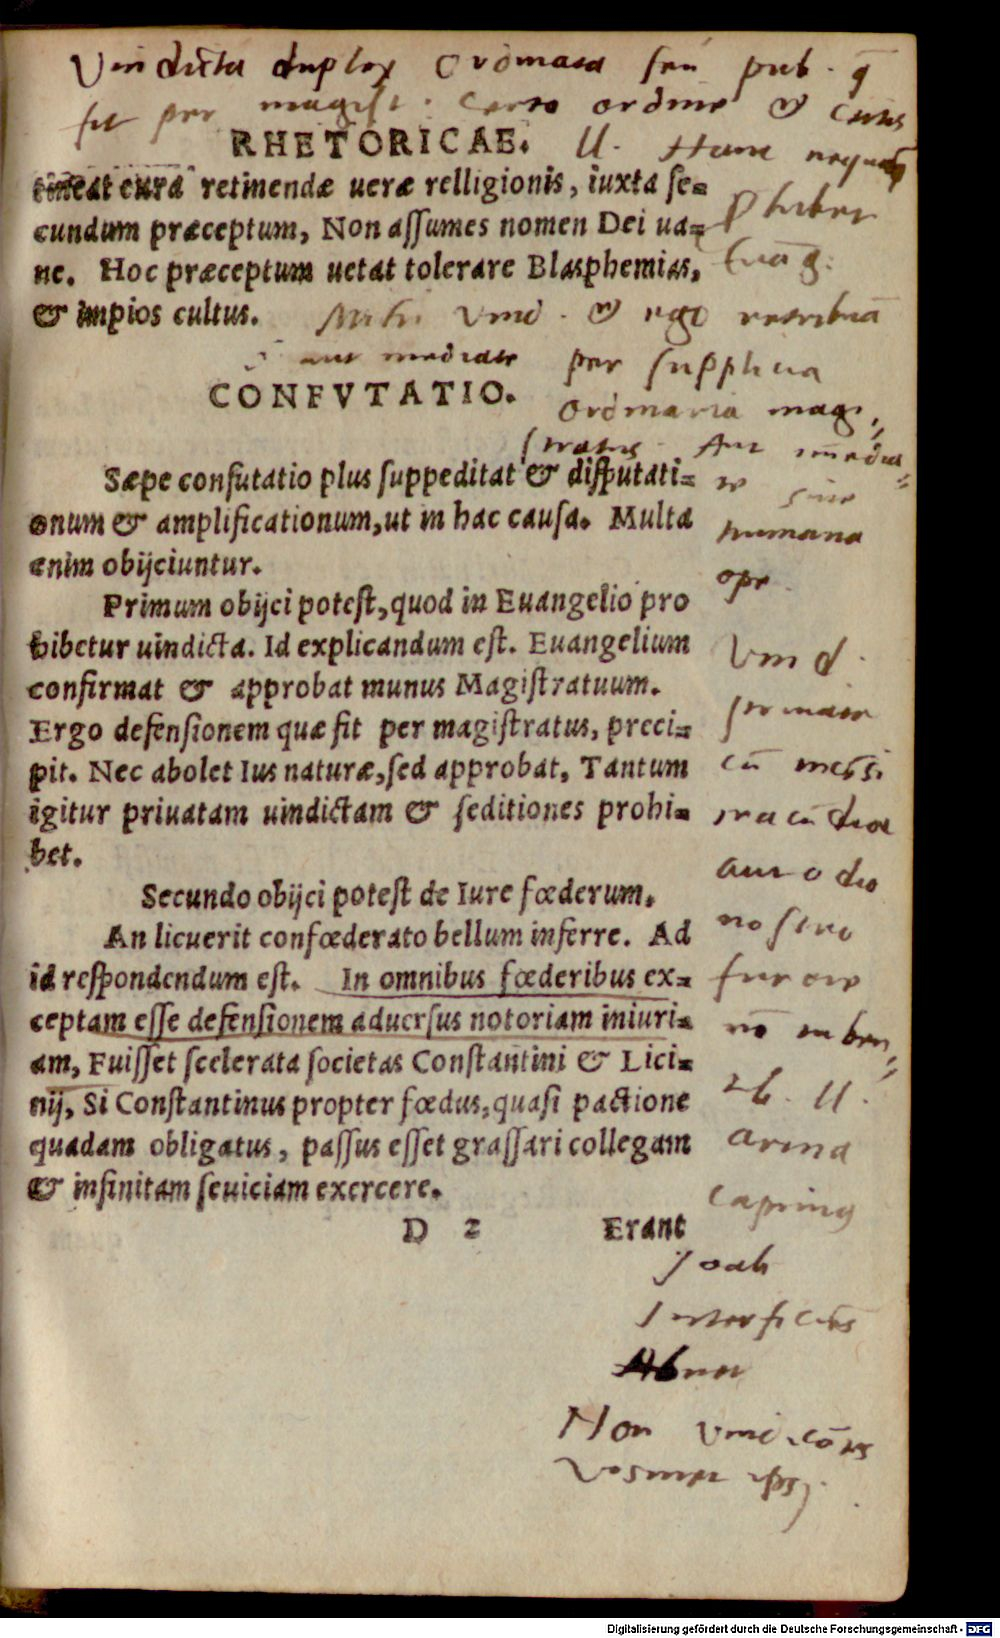 Vindicta duplex Ordinaria seu pub. q̄
fit per magist. certo ordine &
RHETORICAE.
U. Hanc nequa
tineat cura retinendæ ueræ relligionis, iuxta se=
cundum præceptum, Non assumes nomen Dei ua=
ne. Hoc præceptum uetat tolerare Blasphemias,
& impios cultus.
Euāg:
Mihi vind. & ego retribuā
aut mediate per supplicia
CONFVTATIO.
ordinaria magi=
stratus. Aut im̄edia=
te sine
humana
ope.
Sæpe confutatio plus suppeditat & disputati=
onum & amplificationum, ut in hac causa. Multa
enim obijciuntur.
Primum obijci potest, quod in Euangelio pro
hibetur uindicta. Id explicandum est. Euangelium
confirmat & approbat munus Magistratuum.
Ergo defensionem quæ fit per magistratus, preci=
pit. Nec abolet Ius naturæ, sed approbat, Tantum
igitur priuatam uindictam & seditiones prohi=
bet.
Secundo obijci potest de Iure fœderum.
An licuerit confœderato bellum inferre. Ad
id respondendum est. In omnibus fœderibus ex=
ceptam esse defensionem aduersus notoriam iniuri=
am, Fuisset scelerata societas Constantini & Lici=
nij, Si Constantinus propter fœdus, quasi pactione
quadam obligatus, passus esset grassari collegam
& infinitam seuiciam exercere.
D 2 Erant
Vind.
iracūdia
aut odio
nostro
furore
nō iuben=
te. U.
arma
Joab
Interficiēs
Abner
Non vindicātes
vosmet ipsos
Digitalisierung gefördert durch die Deutsche Forschungsgemeinschaft - DFG